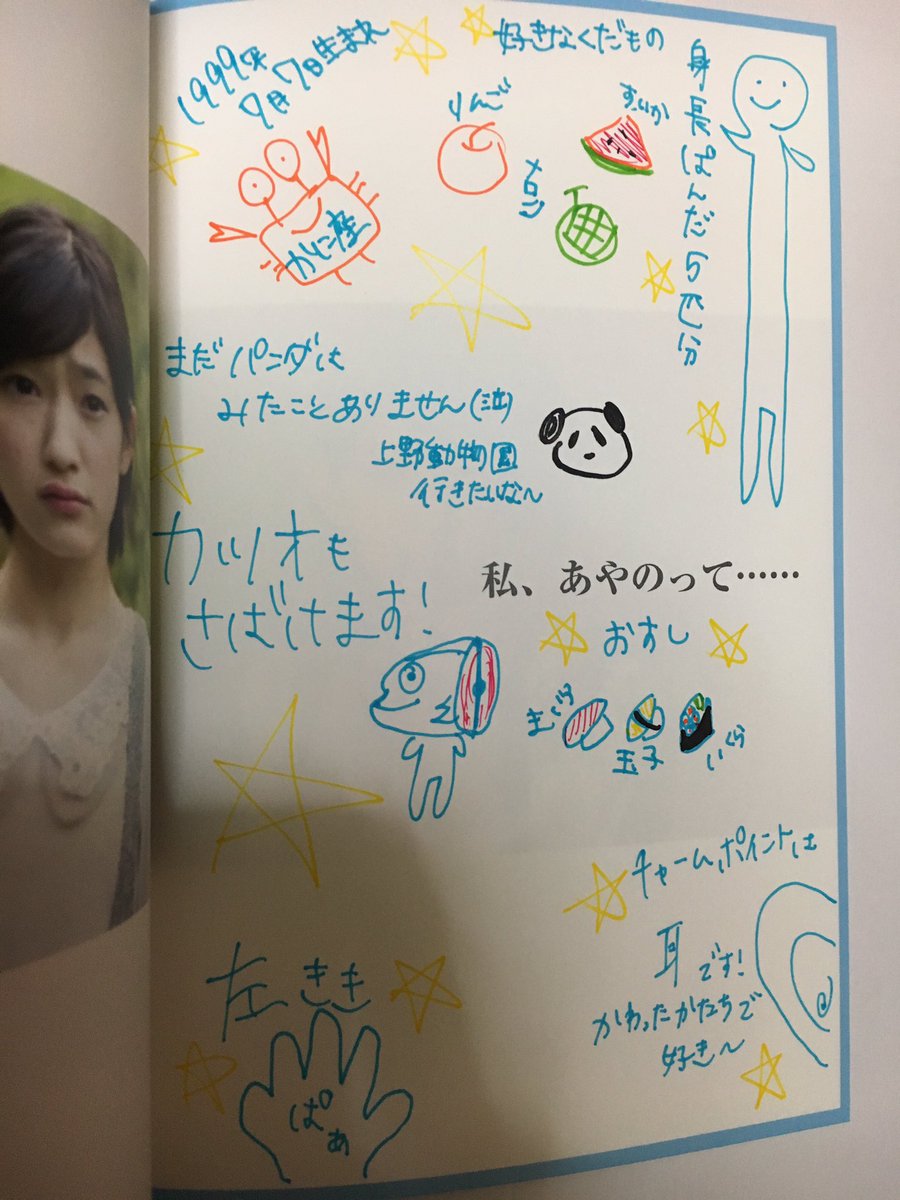 1999年
7月7日生まれ
かに座
好きなくだもの
りんご
すいか
メロン
身長ぱんだ5匹分
まだパンダは
みたことありません(泣)
上野動物園
行きたいな〜
カツオも
さばけます!
私、あやのって……
おすし
まぐろ
玉子
いくら
チャームポイントは
耳です!
かわったかたちで
好き〜
左きき
ぱぁ